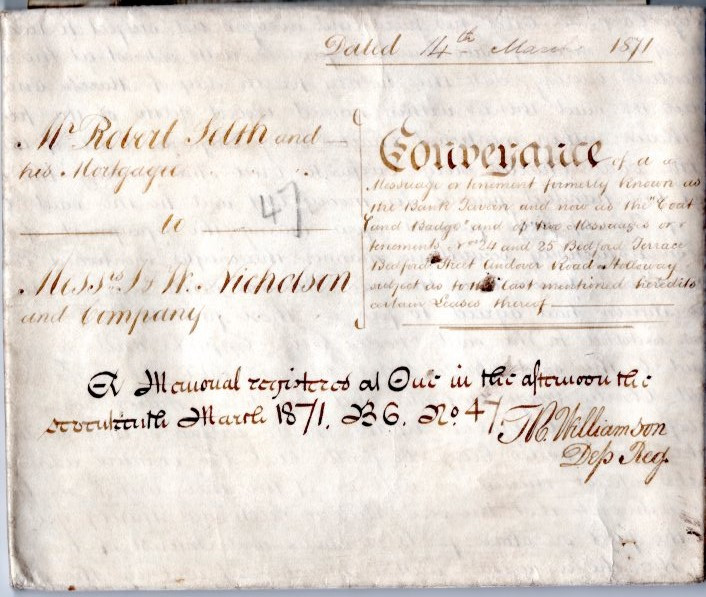 Dated 14th March 1871
Mr Robert Selth and
his Mortgagee
to
Messrs J & W. Nicholson
and Company
47
Conveyance of a
Messuage or tenement formerly known as
the Bank Tavern and now as the "Coat
and Badge" and of two Messuages or
tenements Nos 24 and 25 Bedford Terrace
Bedford Street Andover Road Holloway
subject as to the last mentioned heredits
certain Leases thereof
A Memorial registered at One in the afternoon the
seventeenth March 1871. B 6. No. 47.
Williamson
Dep Reg.